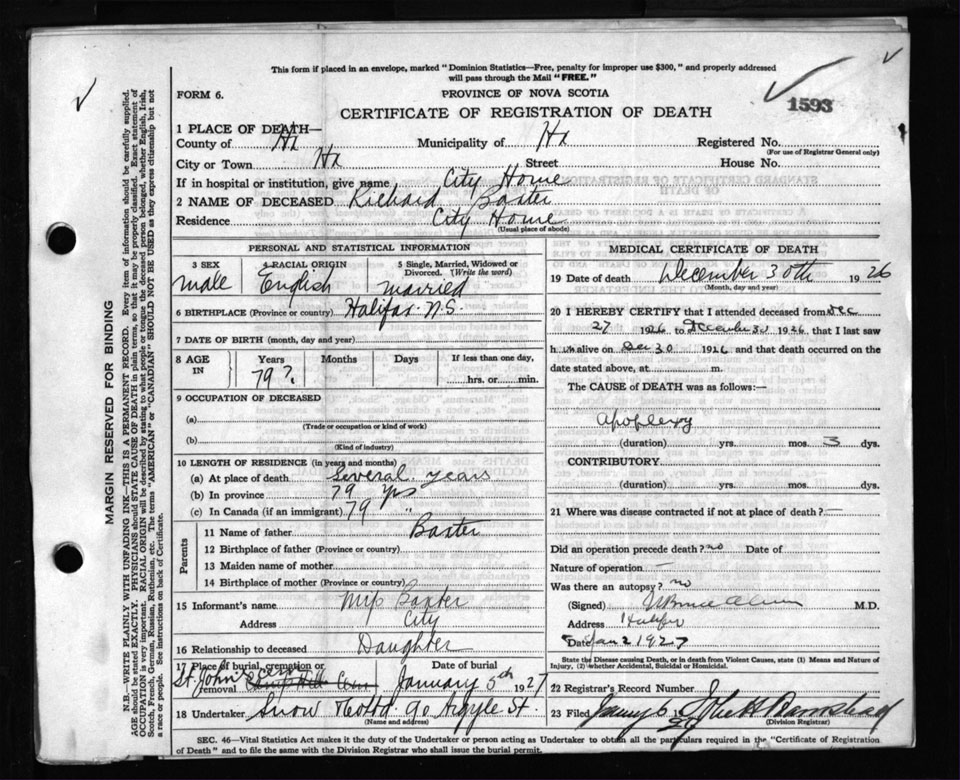 This form if placed in an envelope, marked "Dominion Statistics—Free, penalty for improper use $300," and properly addressed
will pass through the Mail "FREE."
FORM 6.
PROVINCE OF NOVA SCOTIA
1593
CERTIFICATE OF REGISTRATION OF DEATH
1 PLACE OF DEATH—
County of Hx Municipality of Hx Registered No.
(For use of Registrar General only)
City or Town Hx Street House No.
If in hospital or institution, give name City Home
2 NAME OF DECEASED Richard Baxter
Residence City Home
(Usual place of abode)
PERSONAL AND STATISTICAL INFORMATION
3 SEX
male
4 RACIAL ORIGIN
English
5 Single, Married, Widowed or
Divorced. (Write the word)
married
6 BIRTHPLACE (Province or country) Halifax N.S.
7 DATE OF BIRTH (month, day and year)
8 AGE
IN
Years
79?
Months
Days
If less than one day,
hrs. or min.
9 OCCUPATION OF DECEASED
(a)
(Trade or occupation or kind of work)
(b)
(Kind of industry)
10 LENGTH OF RESIDENCE (in years and months)
(a) At place of death Several years
(b) In province 79 yrs
(c) In Canada (if an immigrant) 79 "
Parents
11 Name of father Baxter
12 Birthplace of father (Province or country)
13 Maiden name of mother
14 Birthplace of mother (Province or country)
15 Informant's name Mrs Baxter
Address City
16 Relationship to deceased Daughter
17 Place of burial, cremation or
removal
St. John's Cem
Camp Hill Cem
Date of burial
January 5th 1927
18 Undertaker Snow & Co Ltd. 90 Argyle St.
(Name and address)
MEDICAL CERTIFICATE OF DEATH
19 Date of death December 30th 1926
(Month, day and year)
20 I HEREBY CERTIFY that I attended deceased from Dec
27 1926 to December 30 1926, that I last saw
h im alive on Dec 30 1926 and that death occurred on the
date stated above, at m.
The CAUSE OF DEATH was as follows:—
Apoplexy
(duration) yrs. mos. 3 dys.
CONTRIBUTORY.
(duration) yrs. mos. dys.
21 Where was disease contracted if not at place of death? —
Did an operation precede death? no Date of
Nature of operation —
Was there an autopsy? no
(Signed) M.D.
Address Halifax
Date Jan 2 1927
State the Disease causing Death, or in death from Violent Causes, state (1) Means and Nature of
Injury, (2) whether Accidental, Suicidal or Homicidal.
22 Registrar's Record Number
23 Filed
(Division Registrar)
SEC. 46—Vital Statistics Act makes it the duty of the Undertaker or person acting as Undertaker to obtain all the particulars required in the "Certificate of Registration
of Death" and to file the same with the Division Registrar who shall issue the burial permit.
MARGIN RESERVED FOR BINDING
N.B.—WRITE PLAINLY WITH UNFADING INK—THIS IS A PERMANENT RECORD. Every item of information should be carefully supplied.
AGE should be stated EXACTLY. PHYSICIANS should STATE CAUSE OF DEATH in plain terms, so that it may be properly classified. Exact statement of
OCCUPATION is very important. RACIAL ORIGIN will be described by stating to what people or tongue the deceased person belonged, whether English, Irish,
Scotch, French, German, Russian, Ruthenian, etc. The terms "AMERICAN" or "CANADIAN" SHOULD NOT BE USED as they express citizenship but not
a race or people. See instructions on back of Certificate.